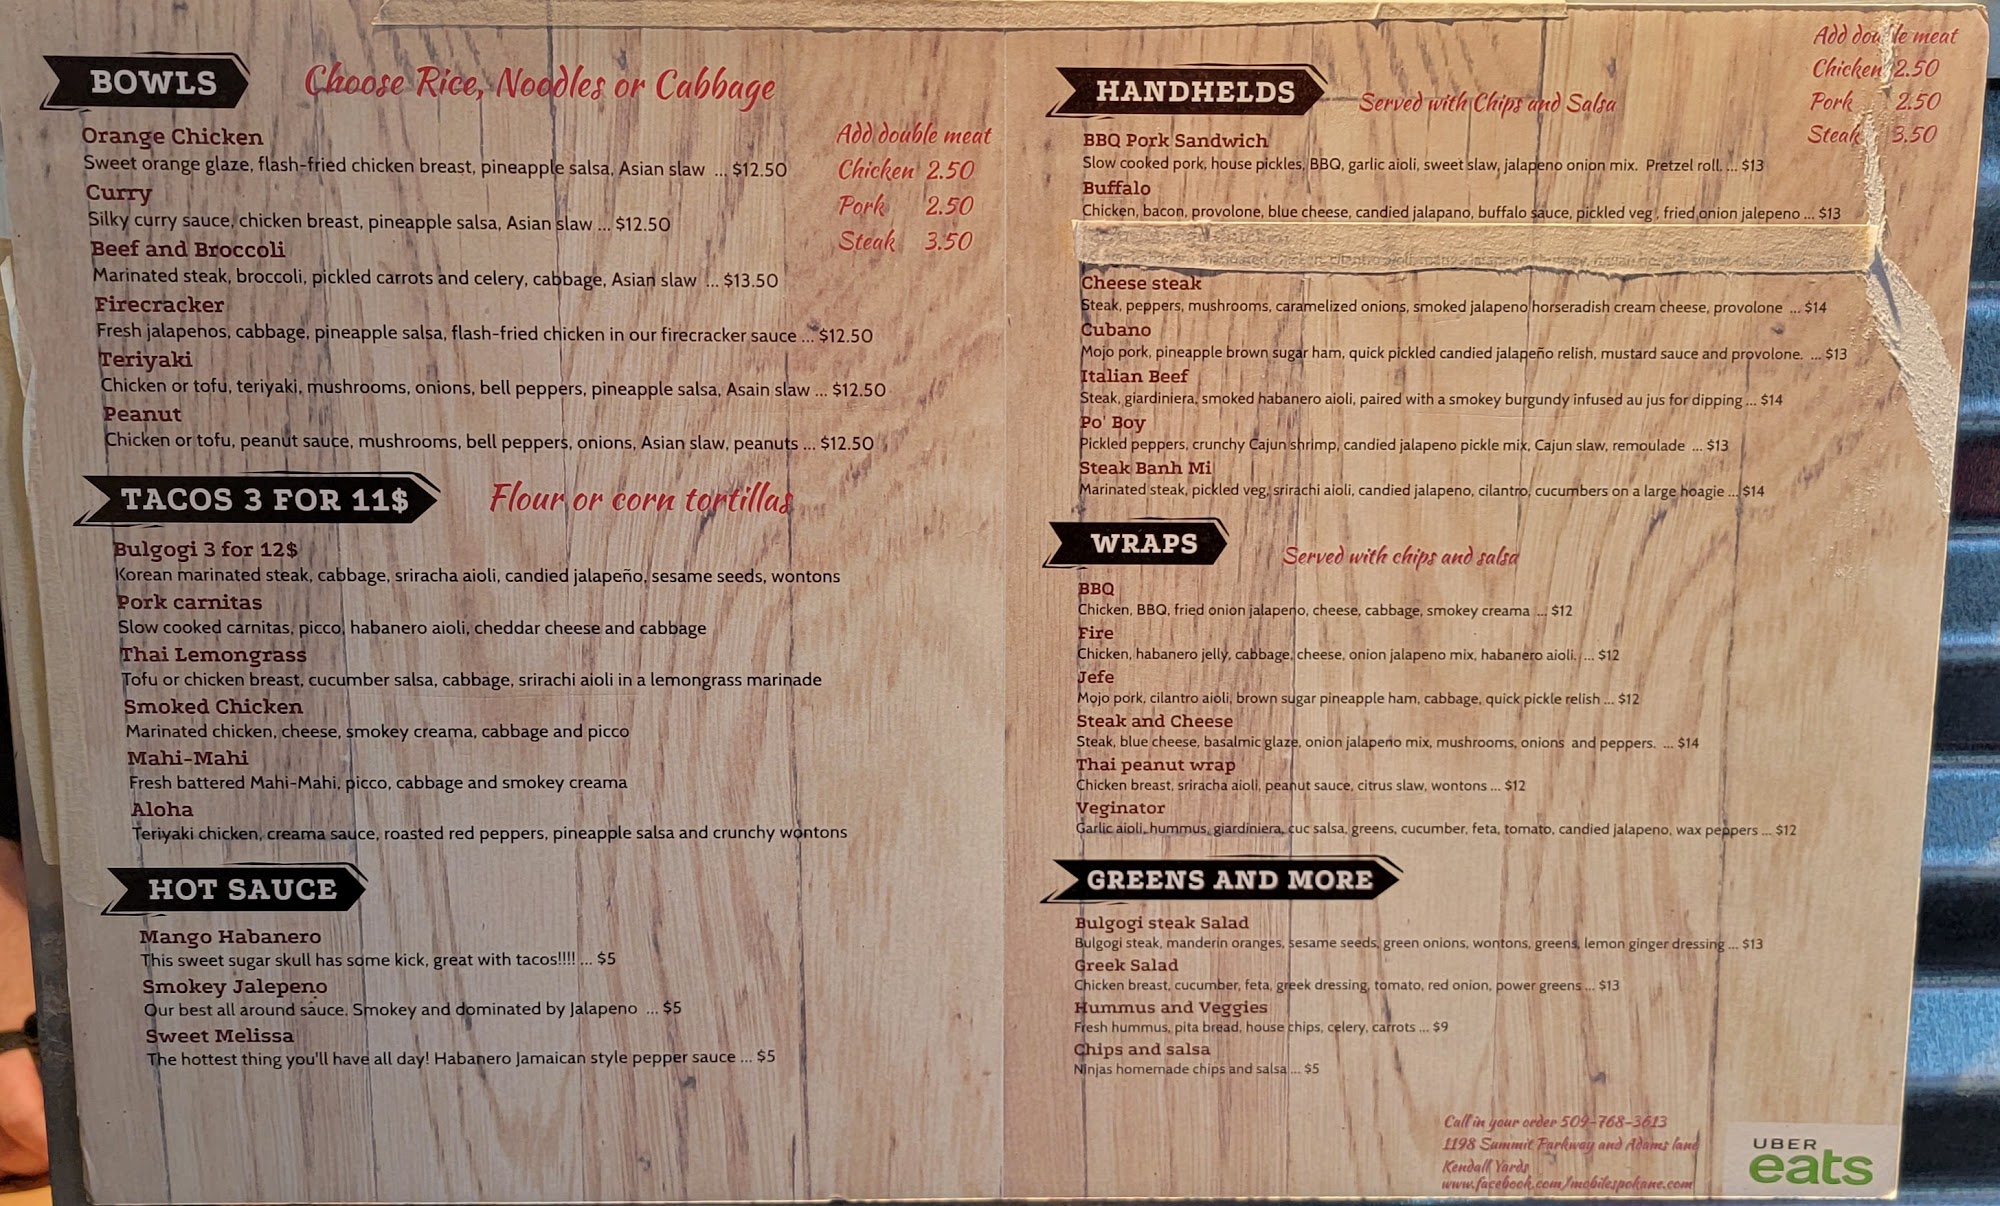 BOWLS
Choose Rice, Noodles or Cabbage
Orange Chicken
Sweet orange glaze, flash-fried chicken breast, pineapple salsa, Asian slaw ... $12.50
Curry
Silky curry sauce, chicken breast, pineapple salsa, Asian slaw ... $12.50
Beef and Broccoli
Marinated steak, broccoli, pickled carrots and celery, cabbage, Asian slaw ... $13.50
Firecracker
Fresh jalapenos, cabbage, pineapple salsa, flash-fried chicken in our firecracker sauce ... $12.50
Teriyaki
Chicken or tofu, teriyaki, mushrooms, onions, bell peppers, pineapple salsa, Asain slaw ... $12.50
Peanut
Chicken or tofu, peanut sauce, mushrooms, bell peppers, onions, Asian slaw, peanuts ... $12.50
Add double meat
Chicken 2.50
Pork 2.50
Steak 3.50
TACOS 3 FOR 11$
Flour or corn tortillas
Bulgogi 3 for 12$
Korean marinated steak, cabbage, sriracha aioli, candied jalapeño, sesame seeds, wontons
Pork carnitas
Slow cooked carnitas, picco, habanero aioli, cheddar cheese and cabbage
Thai Lemongrass
Tofu or chicken breast, cucumber salsa, cabbage, srirachi aioli in a lemongrass marinade
Smoked Chicken
Marinated chicken, cheese, smokey creama, cabbage and picco
Mahi-Mahi
Fresh battered Mahi-Mahi, picco, cabbage and smokey creama
Aloha
Teriyaki chicken, creama sauce, roasted red peppers, pineapple salsa and crunchy wontons
HOT SAUCE
Mango Habanero
This sweet sugar skull has some kick, great with tacos!!!! ... $5
Smokey Jalepeno
Our best all around sauce. Smokey and dominated by Jalapeno ... $5
Sweet Melissa
The hottest thing you'll have all day! Habanero Jamaican style pepper sauce ... $5
HANDHELDS
Served with Chips and Salsa
Add double meat
Chicken 2.50
Pork 2.50
Steak 3.50
BBQ Pork Sandwich
Slow cooked pork, house pickles, BBQ, garlic aioli, sweet slaw, jalapeno onion mix. Pretzel roll. ... $13
Buffalo
Chicken, bacon, provolone, blue cheese, candied jalapano, buffalo sauce, pickled veg , fried onion jalepeno ... $13
Cheese steak
Steak, peppers, mushrooms, caramelized onions, smoked jalapeno horseradish cream cheese, provolone ... $14
Cubano
Mojo pork, pineapple brown sugar ham, quick pickled candied jalapeño relish, mustard sauce and provolone. ... $13
Italian Beef
Steak, giardiniera, smoked habanero aioli, paired with a smokey burgundy infused au jus for dipping ... $14
Po' Boy
Pickled peppers, crunchy Cajun shrimp, candied jalapeno pickle mix, Cajun slaw, remoulade ... $13
Steak Banh Mi
Marinated steak, pickled veg, srirachi aioli, candied jalapeno, cilantro, cucumbers on a large hoagie ... $14
WRAPS
Served with chips and salsa
BBQ
Chicken, BBQ, fried onion jalapeno, cheese, cabbage, smokey creama ... $12
Fire
Chicken, habanero jelly, cabbage, cheese, onion jalapeno mix, habanero aioli. ... $12
Jefe
Mojo pork, cilantro aioli, brown sugar pineapple ham, cabbage, quick pickle relish ... $12
Steak and Cheese
Steak, blue cheese, basalmic glaze, onion jalapeno mix, mushrooms, onions and peppers. ... $14
Thai peanut wrap
Chicken breast, sriracha aioli, peanut sauce, citrus slaw, wontons ... $12
Veginator
Garlic aioli, hummus, giardiniera, cuc salsa, greens, cucumber, feta, tomato, candied jalapeno, wax peppers ... $12
GREENS AND MORE
Bulgogi steak Salad
Bulgogi steak, manderin oranges, sesame seeds, green onions, wontons, greens, lemon ginger dressing ... $13
Greek Salad
Chicken breast, cucumber, feta, greek dressing, tomato, red onion, power greens ... $13
Hummus and Veggies
Fresh hummus, pita bread, house chips, celery, carrots ... $9
Chips and salsa
Ninjas homemade chips and salsa ... $5
Call in your order 509-768-3613
1198 Summit Parkway and Adams lane
Kendall Yards
www.facebook.com/mobilespokane.com
UBER
eats